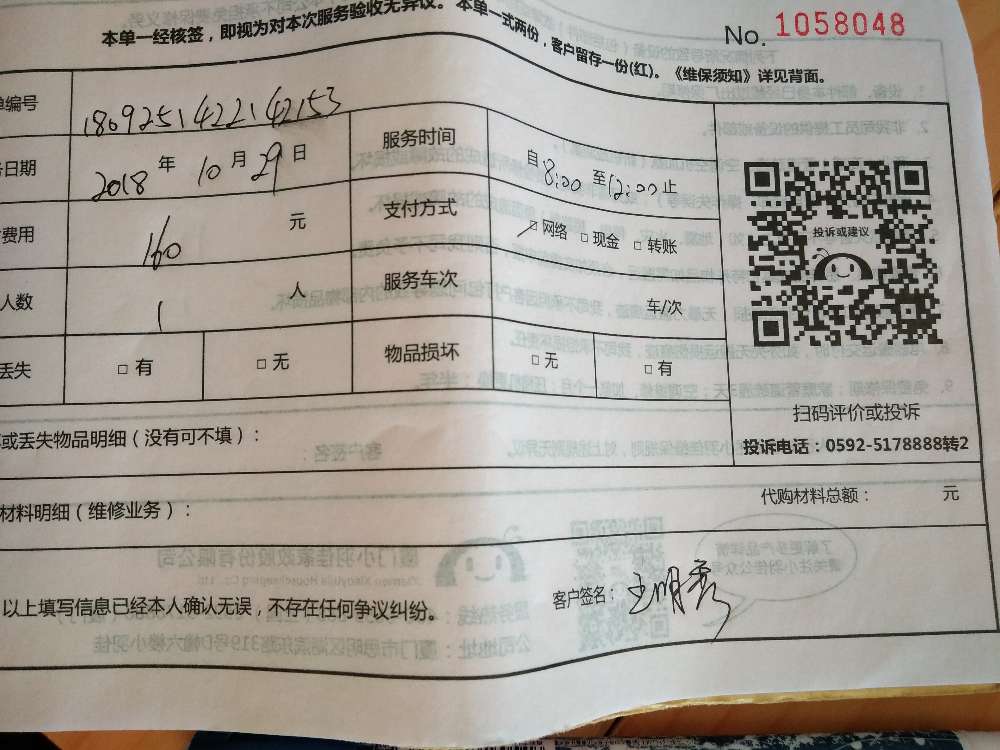 本单一经核签，即视为对本次服务验收无异议。本单一式两份，客户留存一份(红)。《维保须知》详见背面。
No. 1058048
单编号 180925142214 2153
日期 2018 年 10 月 29 日
服务时间 自 8:00 至 12:00 止
费用 160 元
支付方式 □ 网络 □ 现金 □ 转账
人数 1 人
服务车次 车/次
丢失 □ 有 □ 无
物品损坏 □ 无 □ 有
投诉或建议
扫码评价或投诉
投诉电话：0592-5178888转2
或丢失物品明细（没有可不填）：
材料明细（维修业务）：
代购材料总额： 元
以上填写信息已经本人确认无误，不存在任何争议纠纷。
客户签名：王明秀